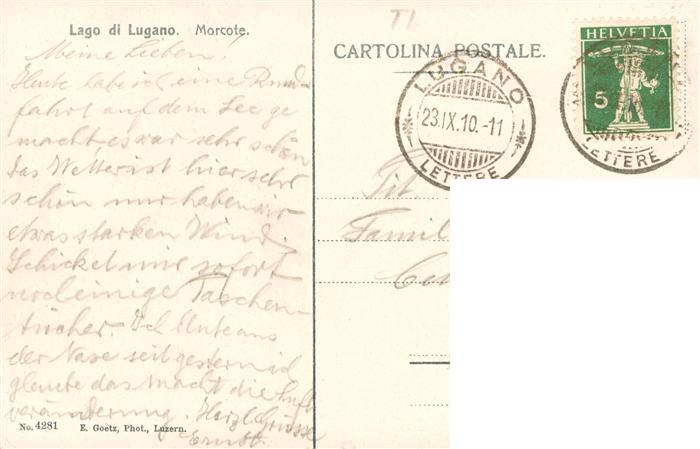 Lago di Lugano. Morcote.
Meine Lieben!
Heute habe ich eine Rund-
fahrt auf dem See ge
macht, es war sehr schön
Das Wetter ist hier sehr
schön nur haben wir
etwas starken Wind.
Schicket mir sofort
noch einige Taschen-
tücher. Ich blute aus
der Nase seit gestern ich
glaube das macht die Luft
veränderung. Herzl. Grüsse
Ernst.
No. 4281 E. Goetz, Phot., Luzern.
TI
CARTOLINA POSTALE.
LUGANO
23.IX.10.-11
LETTERE
HELVETIA
5
LETTERE
Tit.
Famil